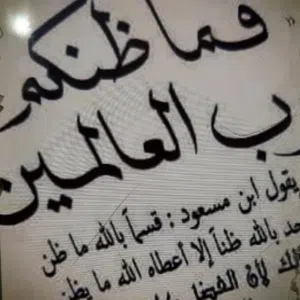 فما ظنكم
رب العالمين
يقول ابن مسعود : قسماً بالله ما ظن
بالله ظناً إلا أعطاه الله ما يظن
لأن الفضل